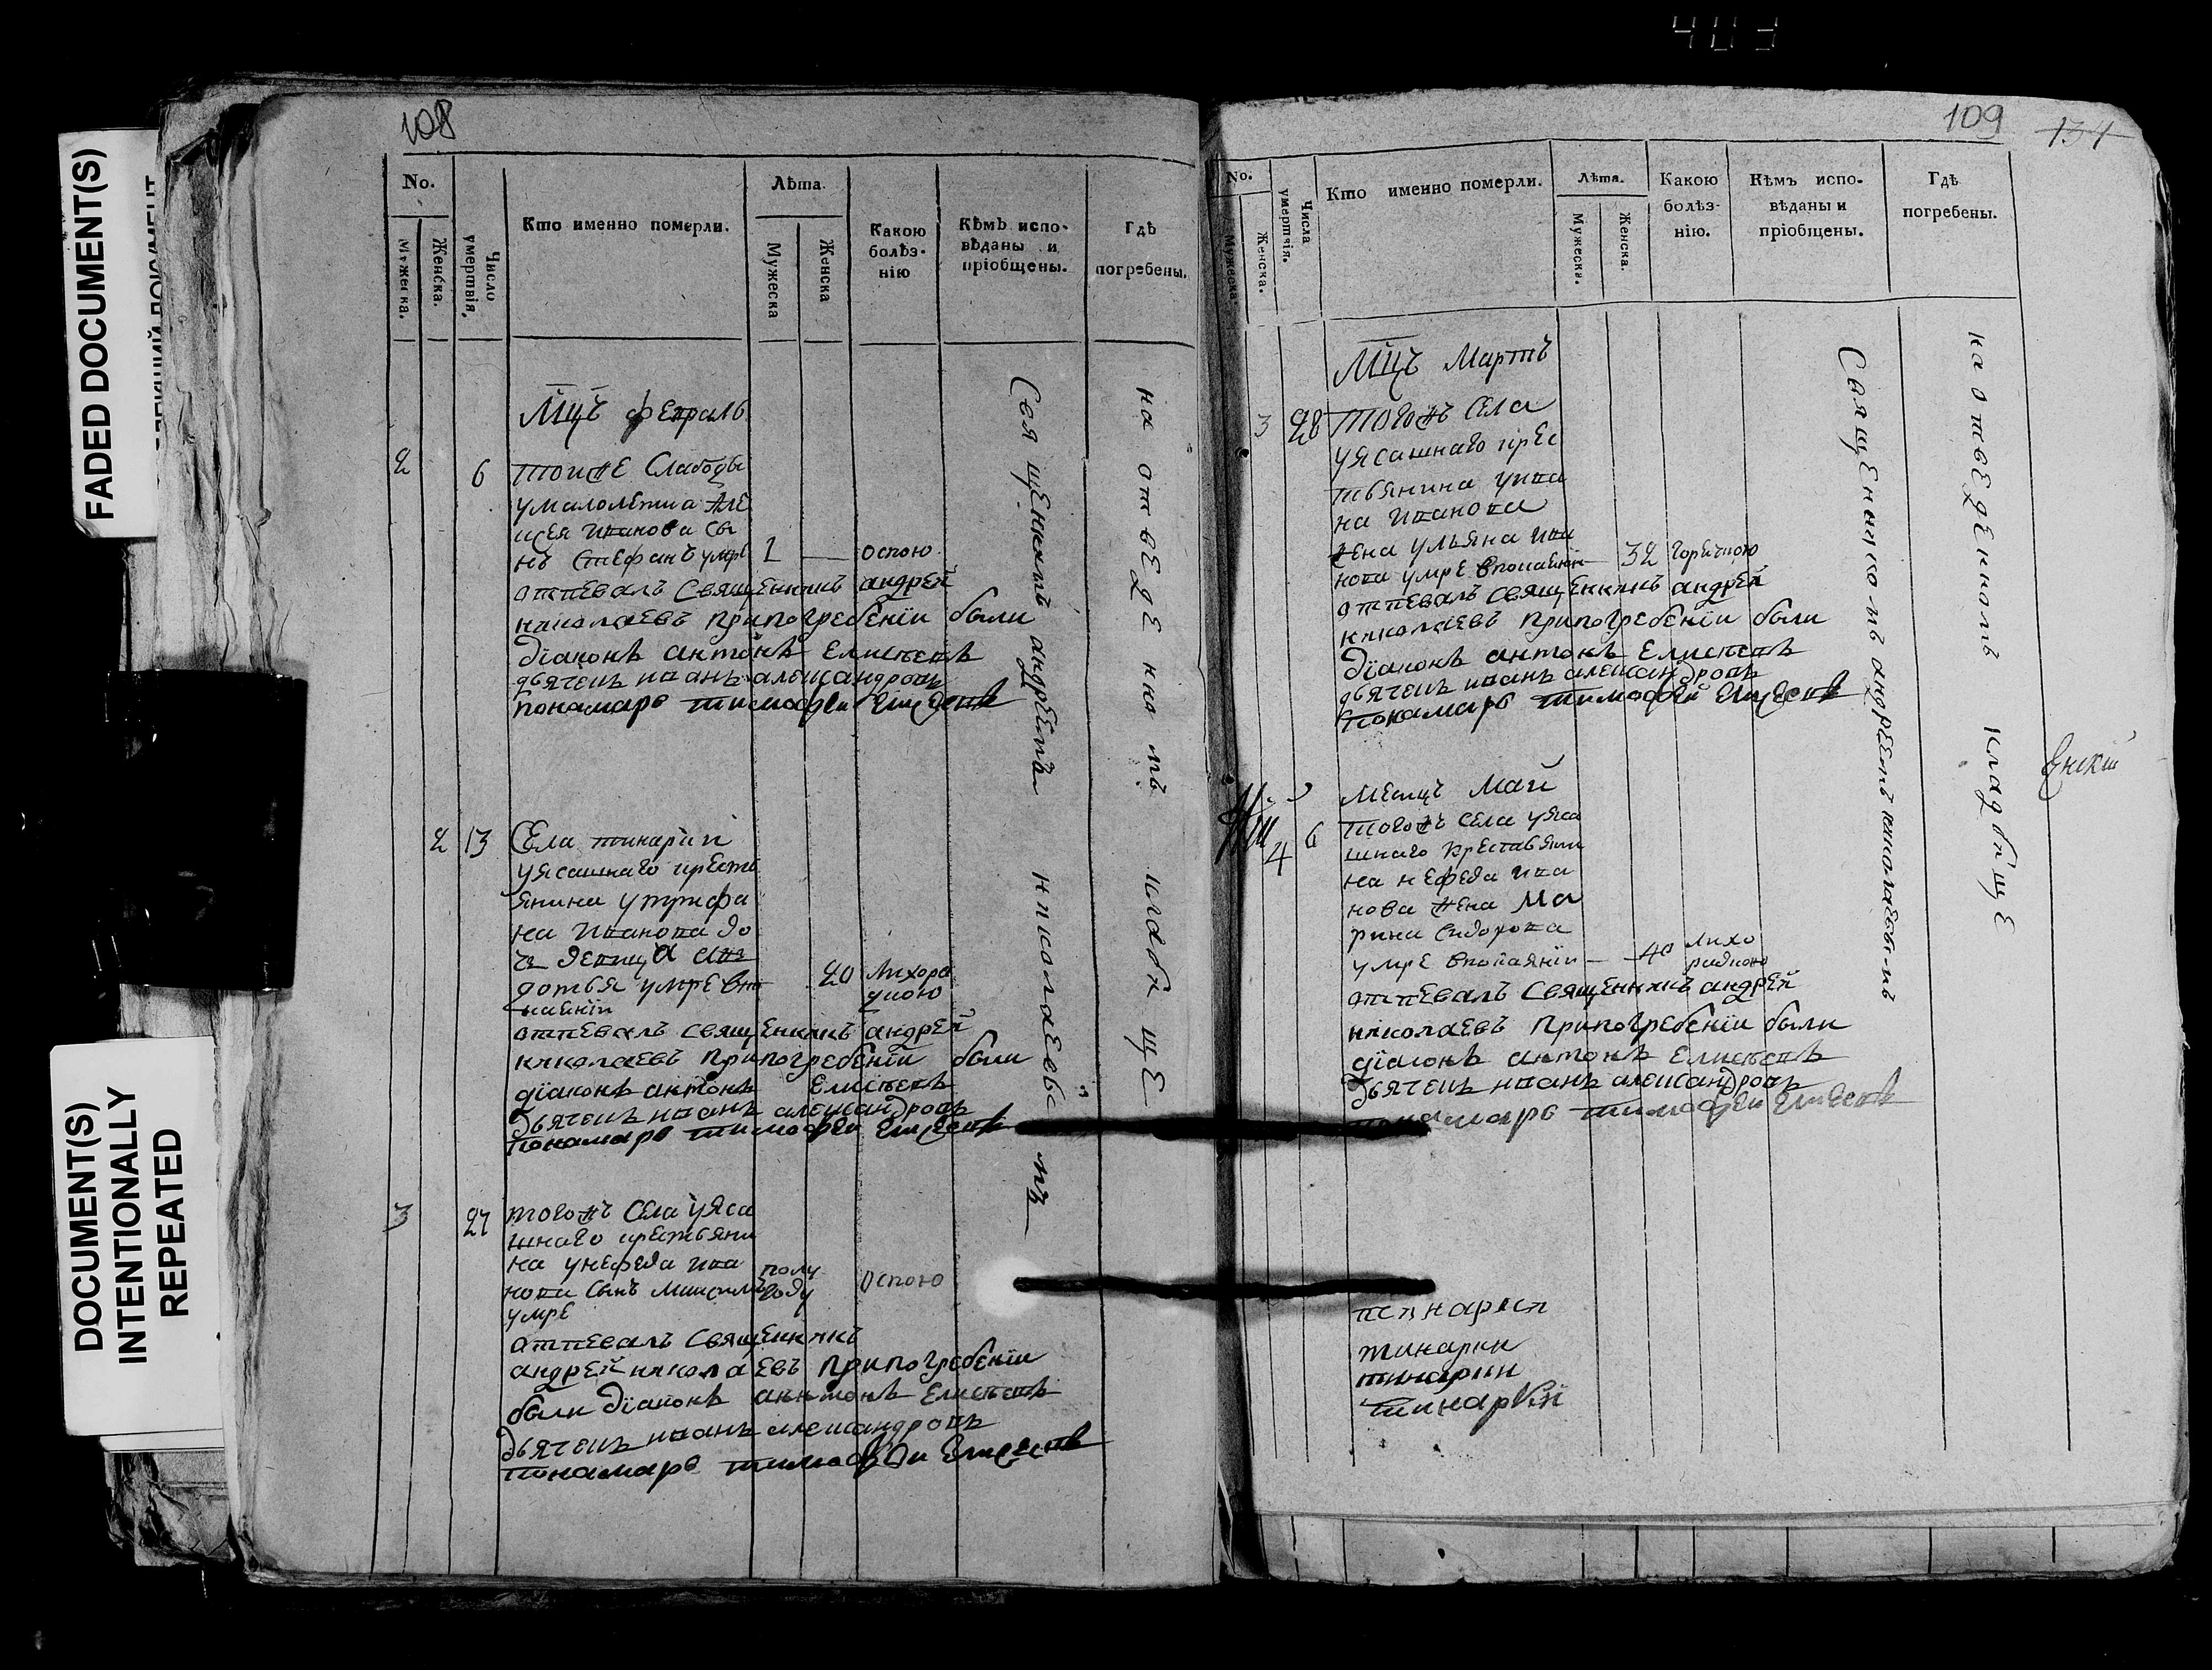 FADED DOCUMENT(S)
DOCUMENT(S)
INTENTIONALLY
REPEATED
108
No.
Мужеска.
Женска.
Число
умертвія.
Кто именно померли.
Лѣта.
Мужеска
Женска
Какою
болѣз-
нію
Кѣмъ испо-
вѣданы и
пріобщены.
Гдѣ
погребены.
Мцъ февраль
2 6 тоиже Слабоды
умалолетна Але
ксея иванова сы
нъ Стефанъ умре 1 — оспою
отпевалъ Священникъ андрей
николаевъ припогребеніи были
діаконъ антонъ Елисеевъ
дьячекъ иванъ александровъ
понамарь тимофеи
2 13 Села тинарки
уясашнаго кресть
янина утрифа
на иванова до
чь девица ав
дотья умре впо 20 лихора
каеніи дкою
отпевалъ священникъ андрей
николаевъ припогребеніи были
діаконъ антонъ Елисеевъ
дьячекъ иванъ александровъ
понамарь тимофеи
3 27 тогожъ села уяса
шнаго крестьяни
на унефеда ива
нова сынъ максимъ полу
году оспою
умре
отпевалъ священникъ
андрей николаевъ припогребеніи
были діаконъ антонъ Елисеевъ
дьячекъ иванъ александровъ
понамарь тимофеи
Священникъ андреимъ николаевымъ
на отведенномъ кладбище
109
134
No.
Мужеска.
Женска.
Числа
умертвія.
Кто именно померли.
Лѣта.
Мужеска.
Женска.
Какою
болѣз-
нію.
Кѣмъ испо-
вѣданы и
пріобщены.
Гдѣ
погребены.
Мцъ Мартъ
3 28 тогожъ села
уясашнаго крес
тьянина ива
на иванова
жена ульяна ива
нова умре впокаеніи — 32 горячкою
отпевалъ священникъ андрей
николаевъ припогребеніи были
діаконъ антонъ Елисеевъ
дьячекъ иванъ александровъ
понамарь тимофеи
месяцъ май
4 6 тогожъ села уяса
шнаго крестьяни
на нефеда ива
нова жена ма
рина сидорова
умре впокаяніи — 40 лихо
радкою
отпевалъ священникъ андрей
николаевъ припогребеніи были
діаконъ антонъ Елисеевъ
дьячекъ иванъ александровъ
понамарь тимофеи
Священникомъ андреемъ николаевымъ
на отведенномъ кладбище
тинарки
тинарки